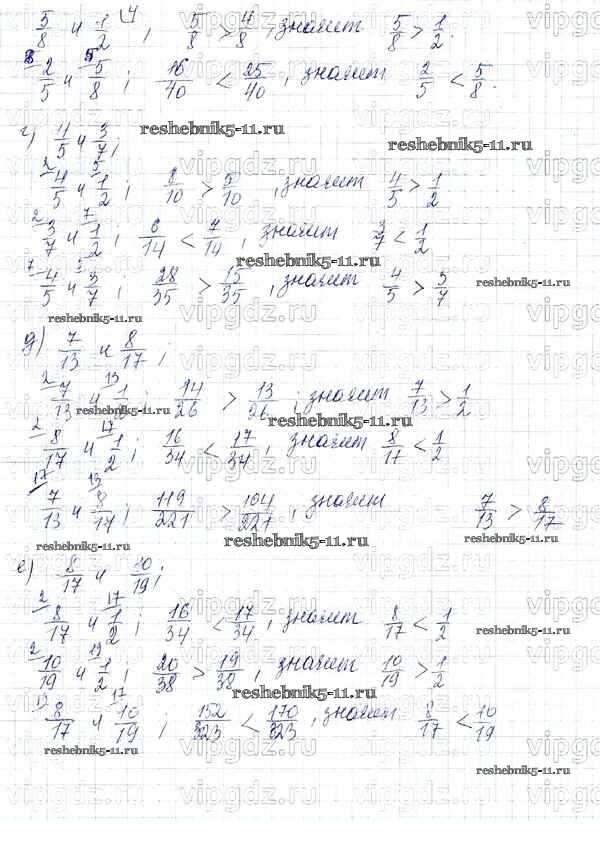 5/8 и 1/2 ; 5/8 > 4/8, значит 5/8 > 1/2.
2/5 и 5/8 ; 16/40 < 25/40, значит 2/5 < 5/8.
г) 4/5 и 3/7;
reshebnik5-11.ru
4/5 и 1/2 ; 8/10 > 5/10, значит 4/5 > 1/2.
3/7 и 1/2 ; 6/14 < 7/14, значит 3/7 < 1/2
reshebnik5-11.ru
4/5 и 3/7 ; 28/35 > 15/35, значит 4/5 > 3/7
reshebnik5-11.ru
reshebnik5-11.ru
д) 7/13 и 8/17 ;
7/13 и 1/2 ; 14/26 > 13/26 ; значит 7/13 > 1/2
reshebnik5-11.ru
reshebnik5-11.ru
8/17 и 1/2 ; 16/34 < 17/34, значит 8/17 < 1/2
7/13 и 8/17 ; 119/221 > 104/221, значит 7/13 > 8/17
reshebnik5-11.ru
reshebnik5-11.ru
е) 8/17 и 10/19;
8/17 и 1/2 ; 16/34 < 17/34, значит 8/17 < 1/2
reshebnik5-11.ru
10/19 и 1/2 ; 20/38 > 19/38, значит 10/19 > 1/2
reshebnik5-11.ru
8/17 и 10/19 ; 152/323 < 170/323, значит 8/17 < 10/19
reshebnik5-11.ru
reshebnik5-11.ru
vipgdz.ru